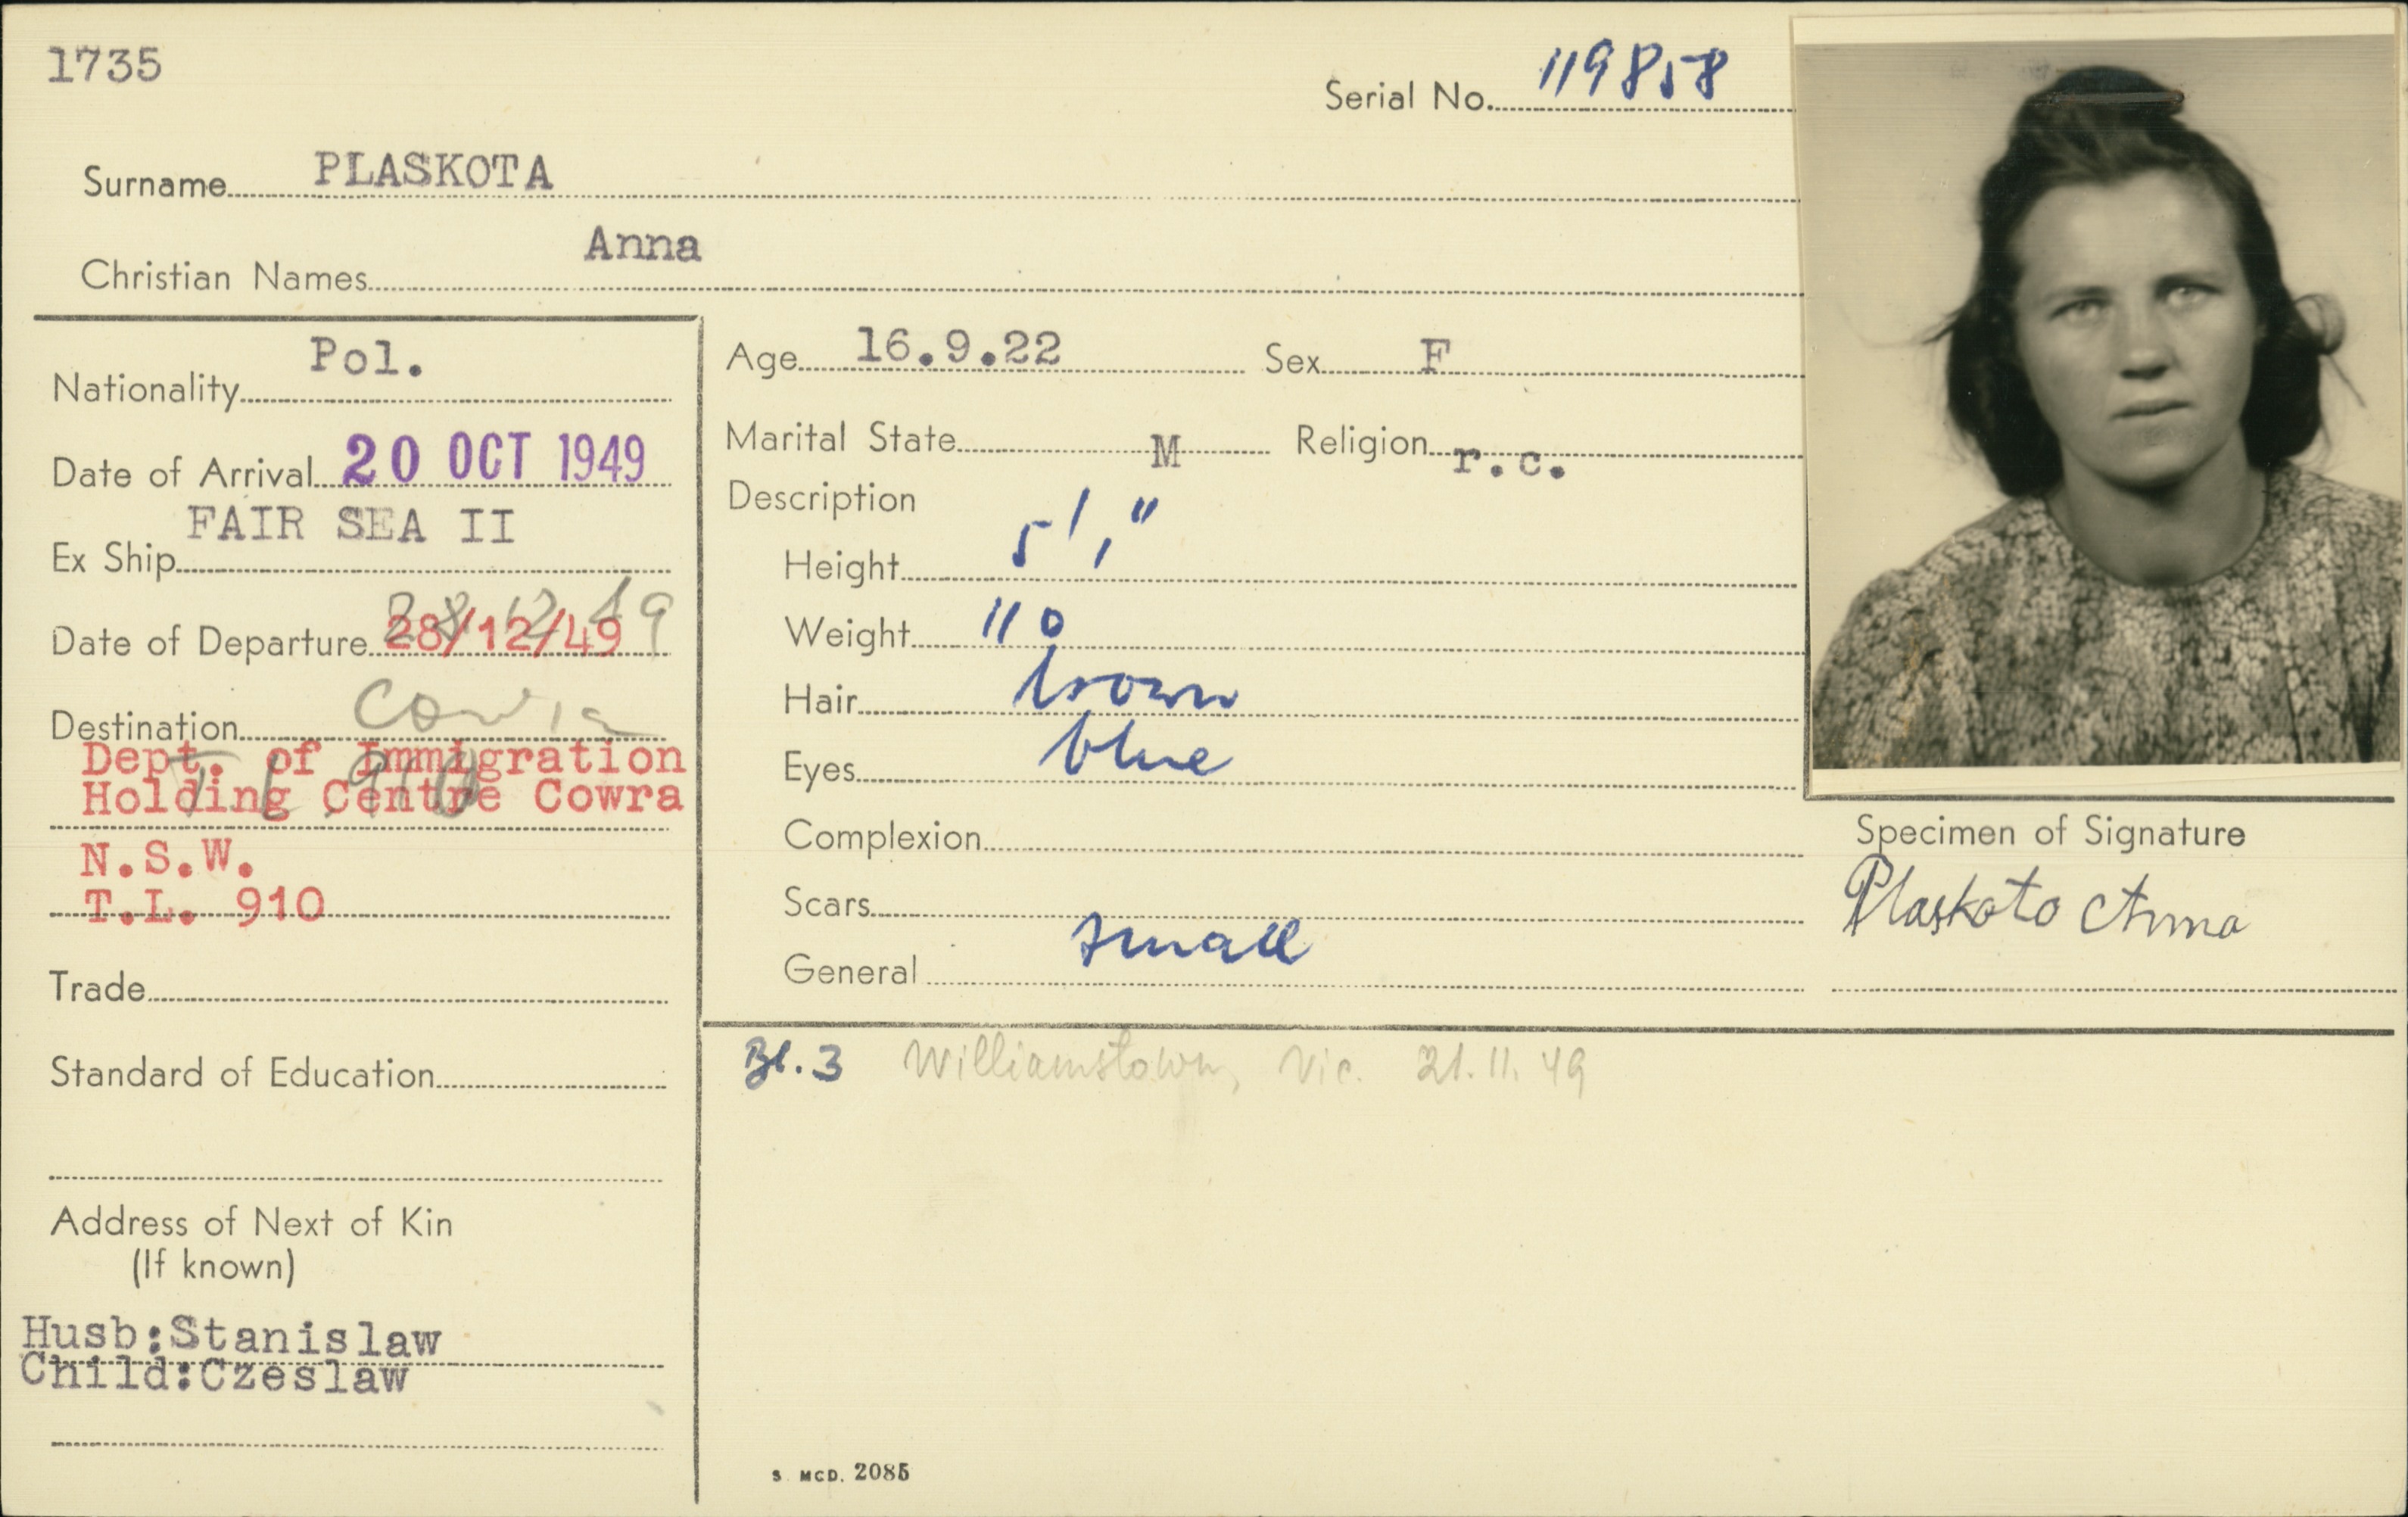 1735
Serial No. 119858
Surname PLASKOTA
Christian Names Anna
Nationality Pol.
Date of Arrival 20 OCT 1949
Ex Ship FAIR SEA II
Date of Departure 28/12/49
28 12 49
Destination Cowra
Dept. of Immigration
Holding Centre Cowra
T.L. 910
N.S.W.
T.L. 910
Trade
Standard of Education
Address of Next of Kin
(If known)
Husb:Stanislaw
Child:Czeslaw
Age 16.9.22 Sex F
Marital State M Religion r.c.
Description
Height 5' 1"
Weight 110
Hair brown
Eyes blue
Complexion
Scars
General small
Specimen of Signature
Plaskota Anna
Bl. 3 Williamstown, Vic. 21.11.49
S. MCD. 2085